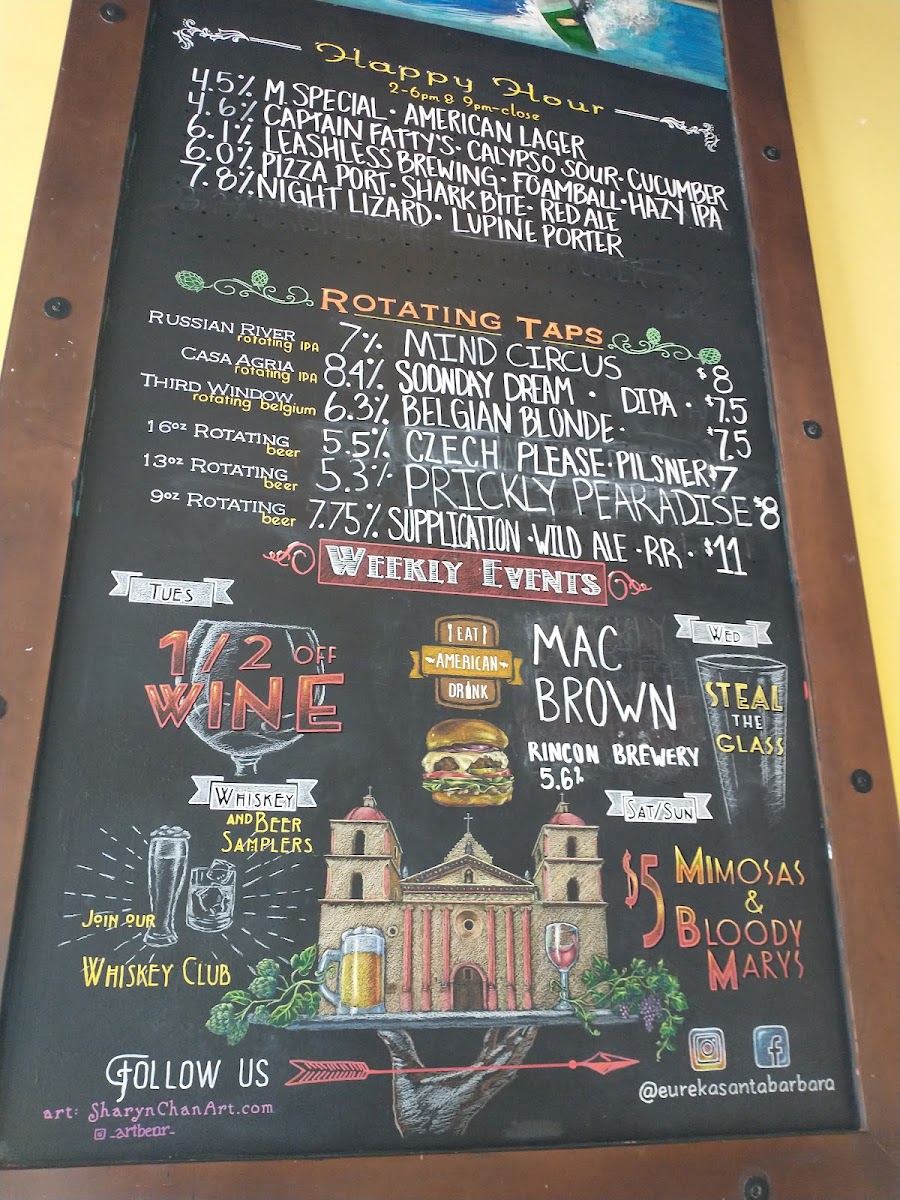 Happy Hour
2-6pm & 9pm-close
4.5% M. SPECIAL · AMERICAN LAGER
4.6% CAPTAIN FATTY'S · CALYPSO SOUR · CUCUMBER
6.1% LEASHLESS BREWING · FOAMBALL · HAZY IPA
6.0% PIZZA PORT · SHARK BITE · RED ALE
7.8% NIGHT LIZARD · LUPINE PORTER
ROTATING TAPS
RUSSIAN RIVER rotating IPA 7% MIND CIRCUS $8
CASA AGRIA rotating IPA 8.4% SOONDAY DREAM · DIPA · $7.5
THIRD WINDOW rotating belgium 6.3% BELGIAN BLONDE · $7.5
16oz ROTATING beer 5.5% CZECH PLEASE · PILSNER $7
13oz ROTATING beer 5.3% · PRICKLY PEARADISE $8
9oz ROTATING beer 7.75% SUPPLICATION · WILD ALE · RR · $11
WEEKLY EVENTS
TUES
1/2 OFF
WINE
EAT
AMERICAN
DRINK
MAC
BROWN
RINCON BREWERY
5.6%
WED
STEAL
THE
GLASS
WHISKEY
AND BEER
SAMPLERS
JOIN OUR
WHISKEY CLUB
SAT/SUN
$5 MIMOSAS
&
BLOODY
MARYS
FOLLOW US
@eurekasantabarbara
art: SharynChanArt.com
_artbear_